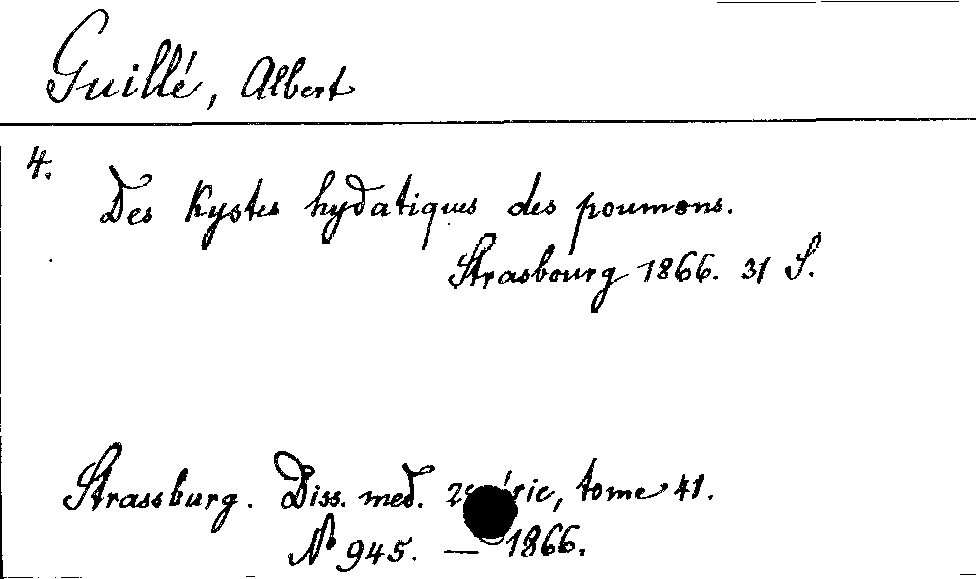 Guillé, Albert
4.
Des Kystes hydatiques des poumons.
Strasbourg 1866. 31 S.
Strassburg. Diss. med. tome 41.
No 945. — 1866.